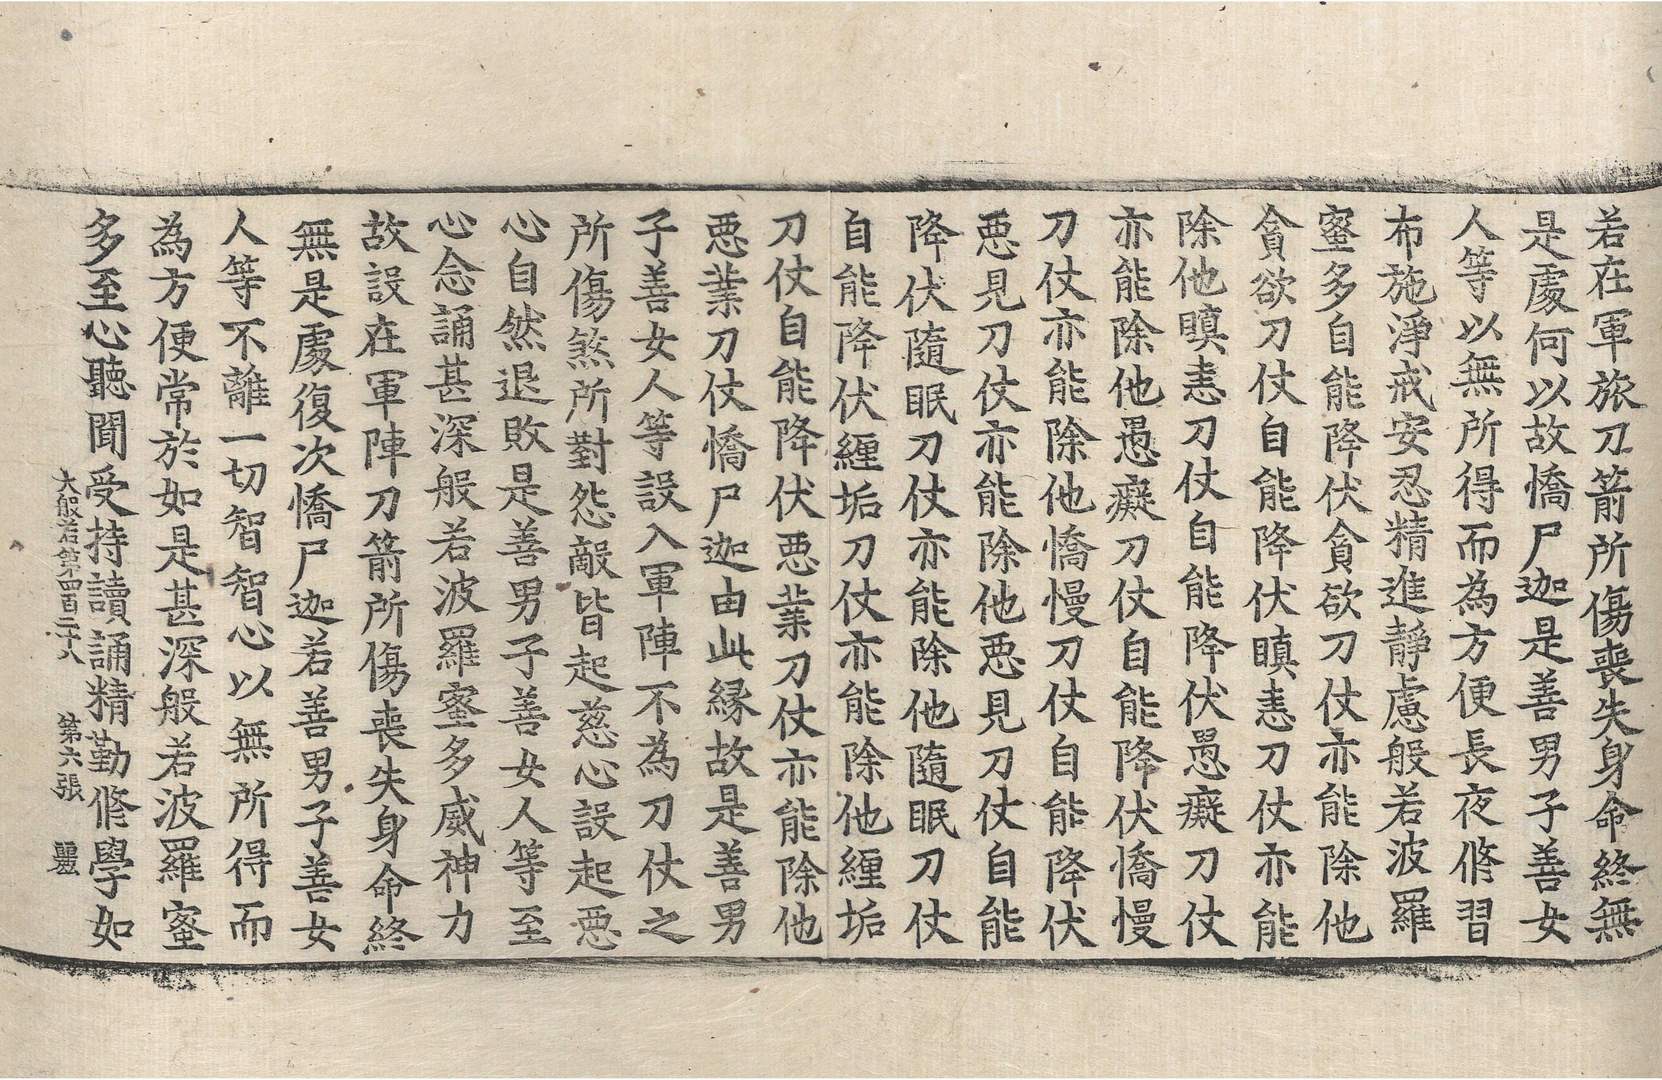 若在軍旅刀箭所傷喪失身命終無
是處何以故憍尸迦是善男子善女
人等以無所得而為方便長夜修習
布施淨戒安忍精進靜慮般若波羅
蜜多自能降伏貪欲刀仗亦能除他
貪欲刀仗自能降伏瞋恚刀仗亦能
除他瞋恚刀仗自能降伏愚癡刀仗
亦能除他愚癡刀仗自能降伏憍慢
刀仗亦能除他憍慢刀仗自能降伏
悪見刀仗亦能除他悪見刀仗自能
降伏隨眠刀仗亦能除他隨眠刀仗
自能降伏纏垢刀仗亦能除他纏垢
刀仗自能降伏悪業刀仗亦能除他
悪業刀仗憍尸迦由此縁故是善男
子善女人等設入軍陣不為刀仗之
所傷煞所對怨敵皆起慈心設起悪
心自然退敗是善男子善女人等至
心念誦甚深般若波羅蜜多威神力
故設在軍陣刀箭所傷喪失身命終
無是處復次憍尸迦若善男子善女
人等不離一切智智心以無所得而
為方便常於如是甚深般若波羅蜜
多至心聽聞受持讀誦精勤修學如
大般若第四百二十八 第六張 麗